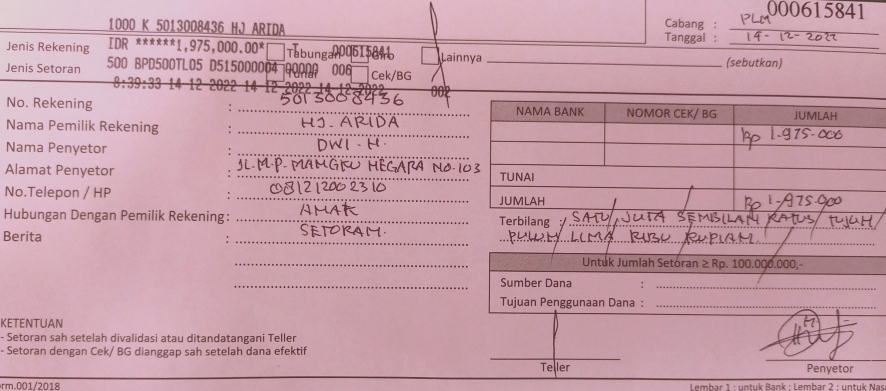 000615841
1000 K 5013008436 HJ ARIDA
Cabang : PLM
Tanggal : 14-12-2022
Jenis Rekening IDR ******1,975,000.00* Tabungan 000615841 Giro Lainnya (sebutkan)
Jenis Setoran 500 BPD500TL05 D515000004 00000 006 Tunai Cek/BG
8:39:33 14-12-2022 14-12-2022 14-12-2022 002
No. Rekening : 5013008436
Nama Pemilik Rekening : HJ. ARIDA
Nama Penyetor : DWI. H.
Alamat Penyetor : JL.M.P. MANGKU NEGARA NO.103
No.Telepon / HP : 081212002310
Hubungan Dengan Pemilik Rekening : ANAK
Berita : SETORAN.
NAMA BANK NOMOR CEK/ BG JUMLAH
Rp 1.975.000
TUNAI
JUMLAH Rp 1.975.000
Terbilang : SATU JUTA SEMBILAN RATUS TUJUH
PULUH LIMA RIBU RUPIAH
Untuk Jumlah Setoran ≥ Rp. 100.000.000,-
Sumber Dana :
Tujuan Penggunaan Dana :
KETENTUAN
- Setoran sah setelah divalidasi atau ditandatangani Teller
- Setoran dengan Cek/ BG dianggap sah setelah dana efektif
Teller
Penyetor
orm.001/2018
Lembar 1 : untuk Bank ; Lembar 2 : untuk Nas